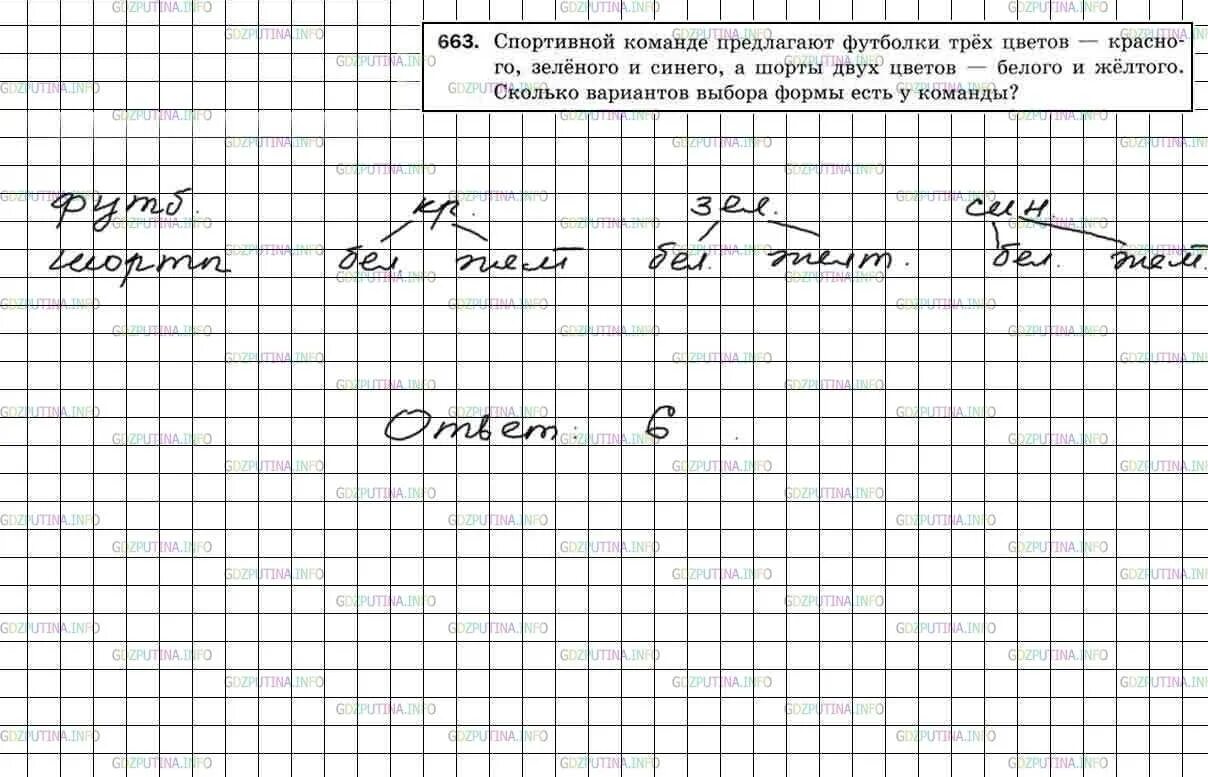 663. Спортивной команде предлагают футболки трёх цветов — красно-
го, зелёного и синего, а шорты двух цветов — белого и жёлтого.
Сколько вариантов выбора формы есть у команды?
футб. кр. зел. син.
шорты бел. желт бел. желт. бел. желт.
Ответ: 6
GDZPUTINA.INFO